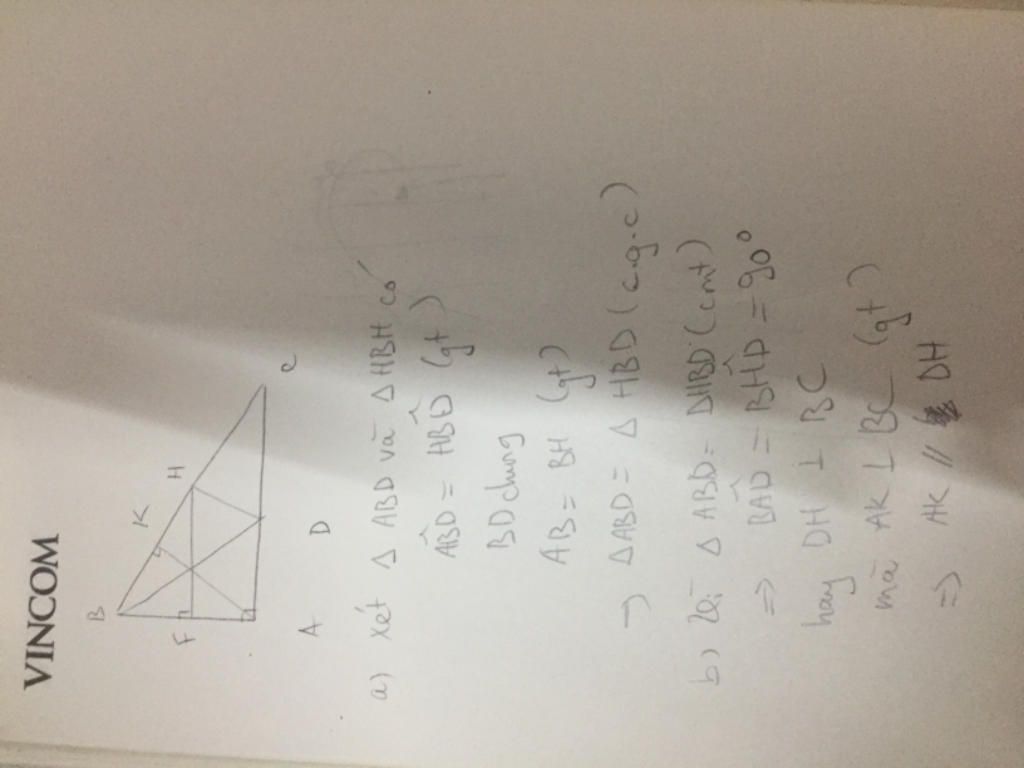 VINCOM
B
K
H
F
C
A
D
a) Xét Δ ABD và Δ HBH có
ABD̂ = HBD̂ (gt)
BD chung
AB = BH (gt)
→ ΔABD = Δ HBD (c.g.c)
b) Vì Δ ABD = ΔHBD (cmt)
=> BÂD = BĤD = 90°
hay DH ⊥ BC
mà AK ⊥ BC (gt)
=> AK // DH